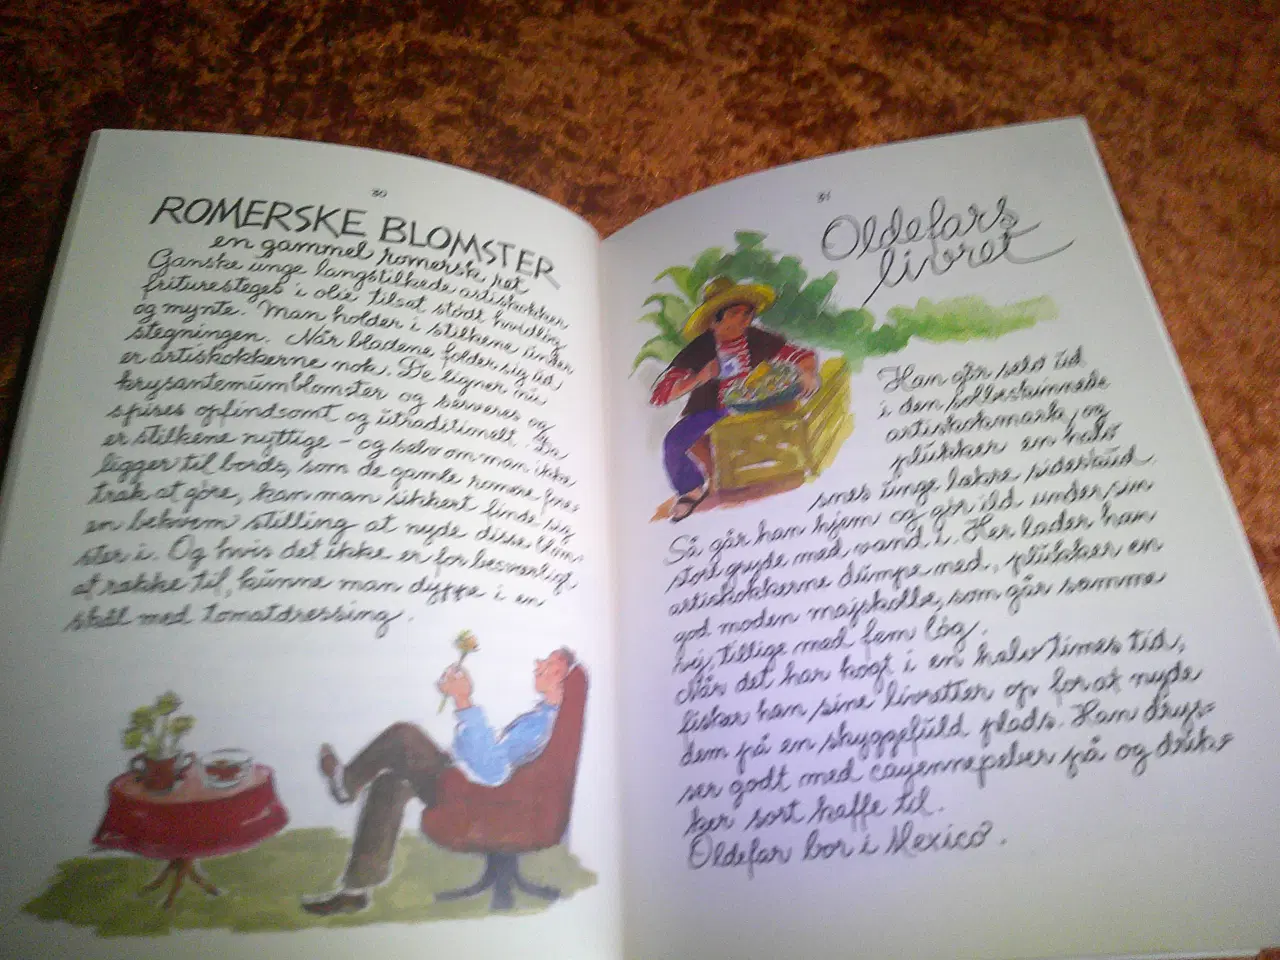 30
ROMERSKE BLOMSTER
en gammel romersk ret
Ganske unge langstilkede artiskokker
frituresteges i olie tilsat stødt hvidløg
og mynte. Man holder i stilkene under
stegningen. Når bladene folder sig ud
er artiskokkerne nok. De ligner nu
krysantemumblomster og serveres og
spises opfindsomt og utraditionelt. Da
er stilkene nyttige - og selv om man ikke
ligger til bords, som de gamle romere fore=
trak at gøre, kan man sikkert finde sig
en bekvem stilling at nyde disse blom=
ster i. Og hvis det ikke er for besværligt
at række til, kunne man dyppe i en
skål med tomatdressing.
31
Oldefars
livret
Han går selv ud
i den solbeskinnede
artiskokmark, og
plukker en halv
snes unge lækre sideskud.
Så går han hjem og gør ild under sin
stort gryde med vand i. Her lader han
artiskokkerne dumpe ned, plukker en
god moden majskolbe, som går samme
vej, tillige med fem løg.
Når det har kogt i en halv times tid,
fisker han sine livretter op for at nyde
dem på en skyggefuld plads. Han drys=
ser godt med cayennepeber på og drik=
ker sort kaffe til.
Oldefar bor i Mexico.